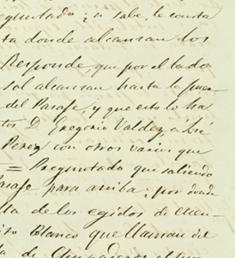 guntado; si sabe, le consta
ta donde alcansan los
Responde que por el lado
sol alcansan hasta la
del Parage, y que esto le ha
D. Gregorio Valdez, a José
Perez con otros varios que
= Preguntado que saliendo
Parage para arriba: por donde
ta de los egidos de
ito Blanco que llaman del